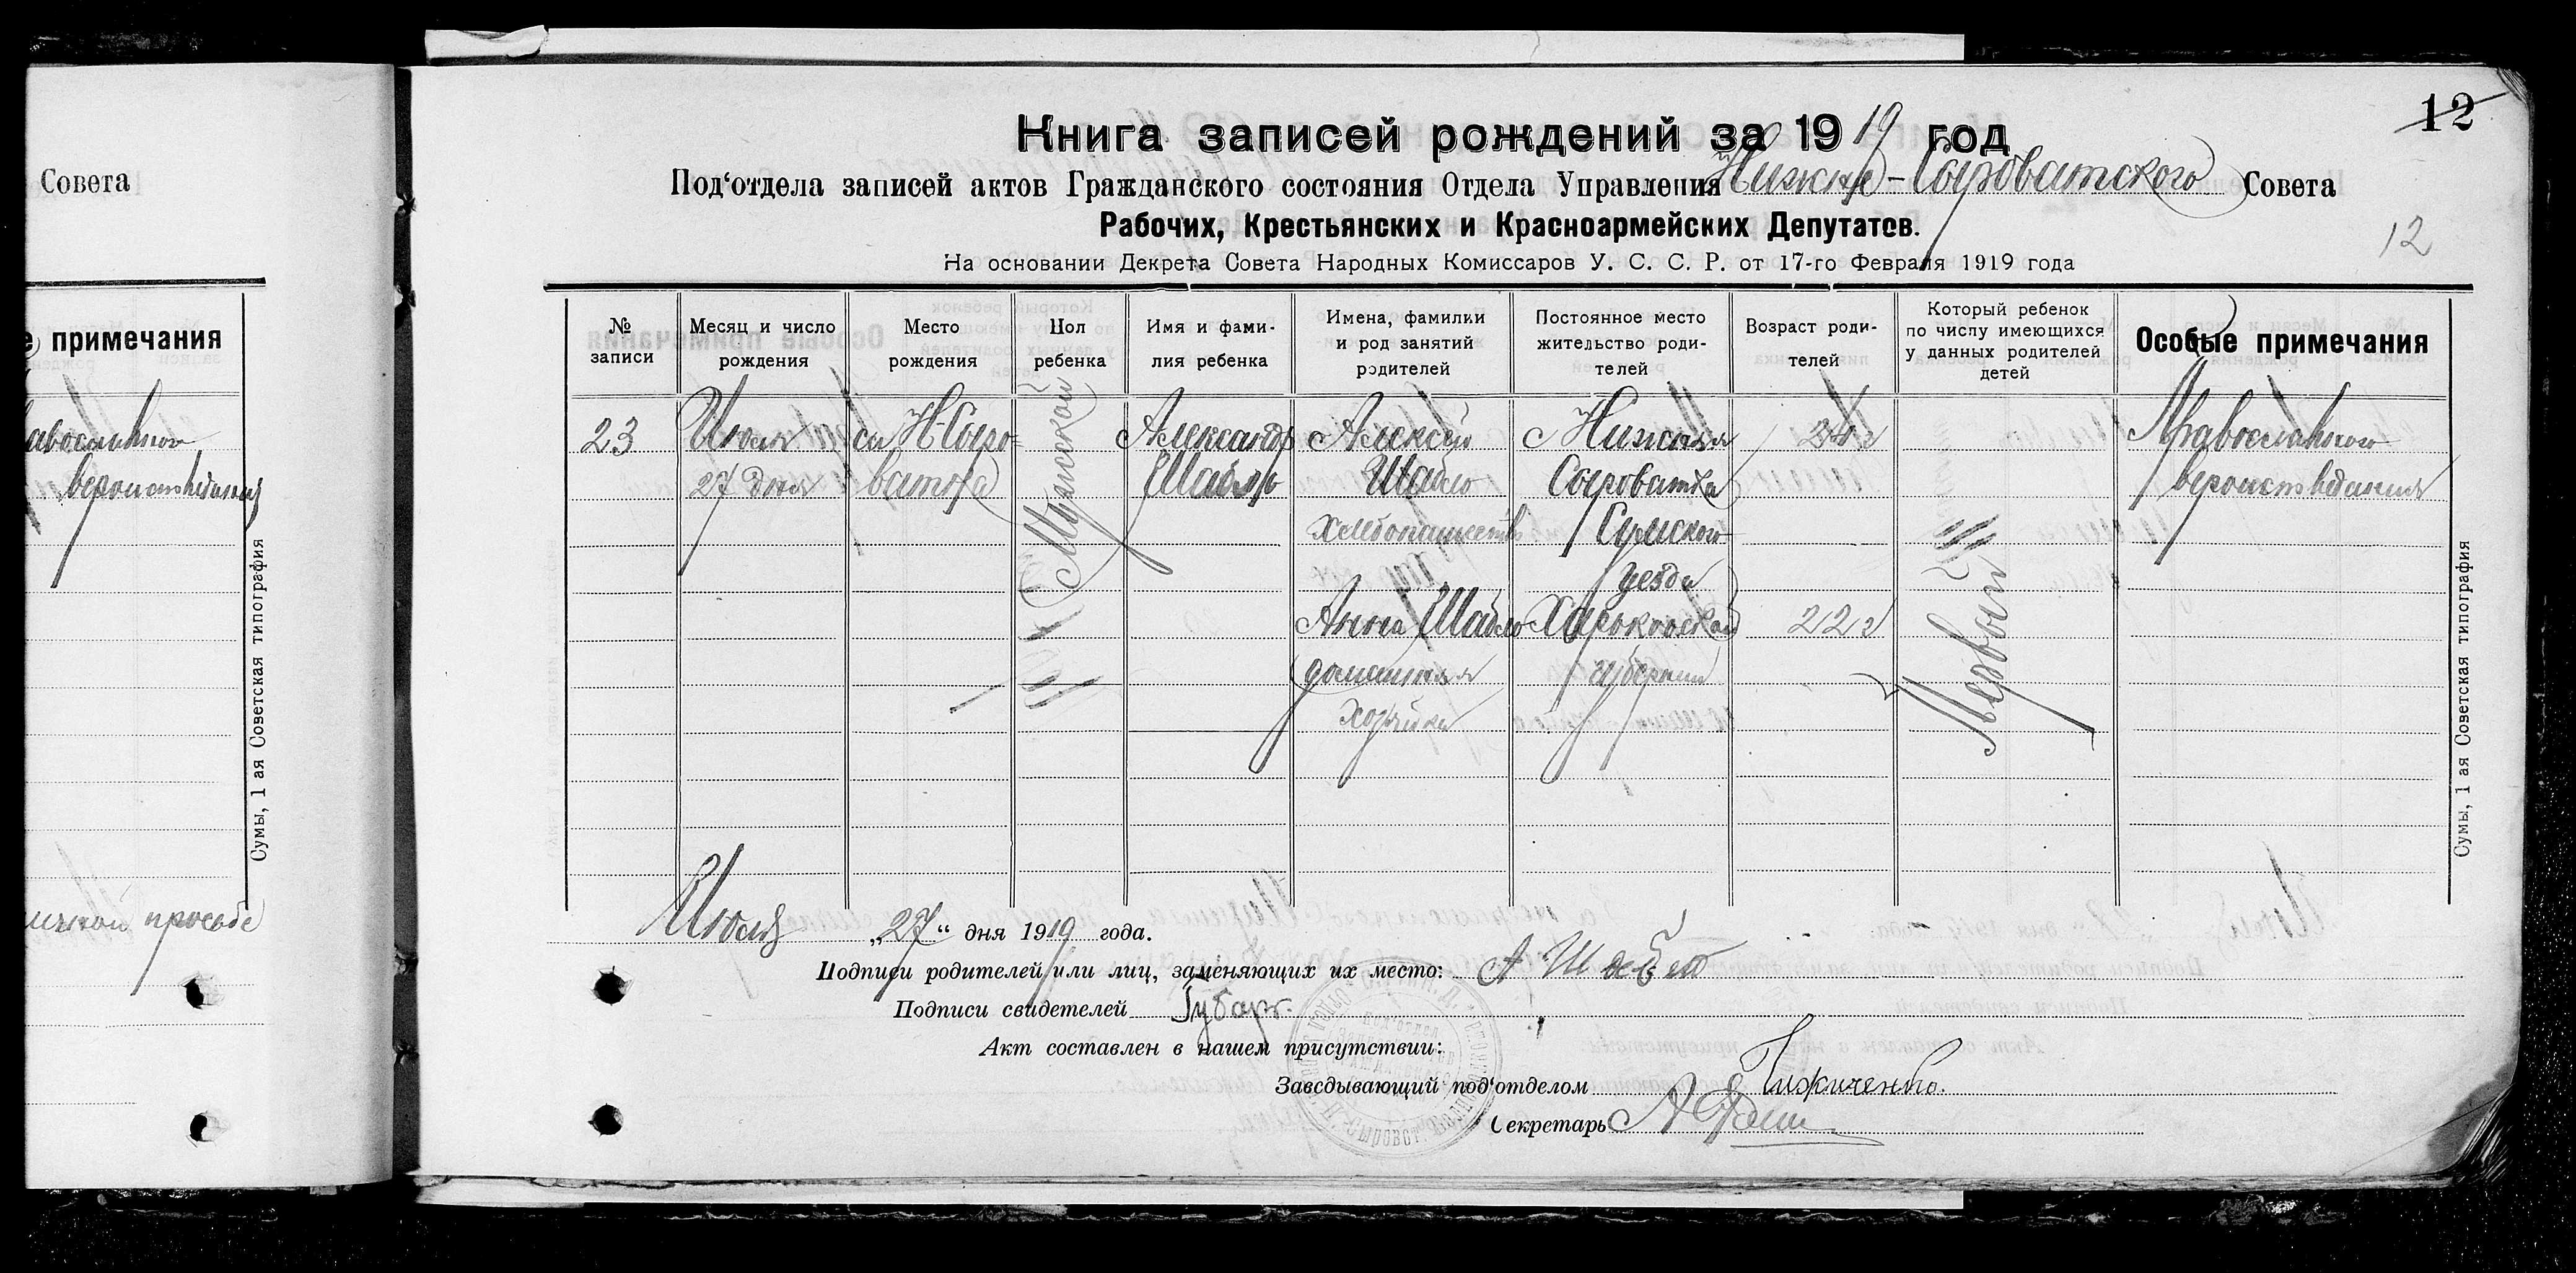 Совета
е примечания
вероисповедания
Сумы, 1 ая Советская типография
просьбе
12
Книга записей рождений за 1919 год
Под‘отдела записей актов Гражданского состояния Отдела Управления Нижне-Сыроватского Совета
Рабочих, Крестьянских и Красноармейских Депутатов.
12
На основании Декрета Совета Народных Комиссаров У. С. С. Р. от 17-го Февраля 1919 года
№ записи
Месяц и число рождения
Место рождения
Пол ребенка
Имя и фами-
лия ребенка
Имена, фамилии
и род занятий
родителей
Постоянное место
жительство роди-
телей
Возраст роди-
телей
Который ребенок
по числу имеющихся
у данных родителей
детей
Особые примечания
23
Июля
27 дня
сл Н-Сыро-
ватка
Мужской
Александр
Шабло
Алексей
Шабло
хлебопашеств
Анна Шабло
домашняя
хозяйка
с Нижняя
Сыроватка
Сумского
уезда
Харьковской
губернии
24 г
22 г
Первый
Православного
вероисповедания
Сумы, 1 ая Советская типография
Июля „27“ дня 1919 года.
Подписи родителей или лиц, заменяющих их место: А Шабло
Подписи свидетелей Губарь.
Акт составлен в нашем присутствии:
Заведывающий под‘отделом
Секретарь